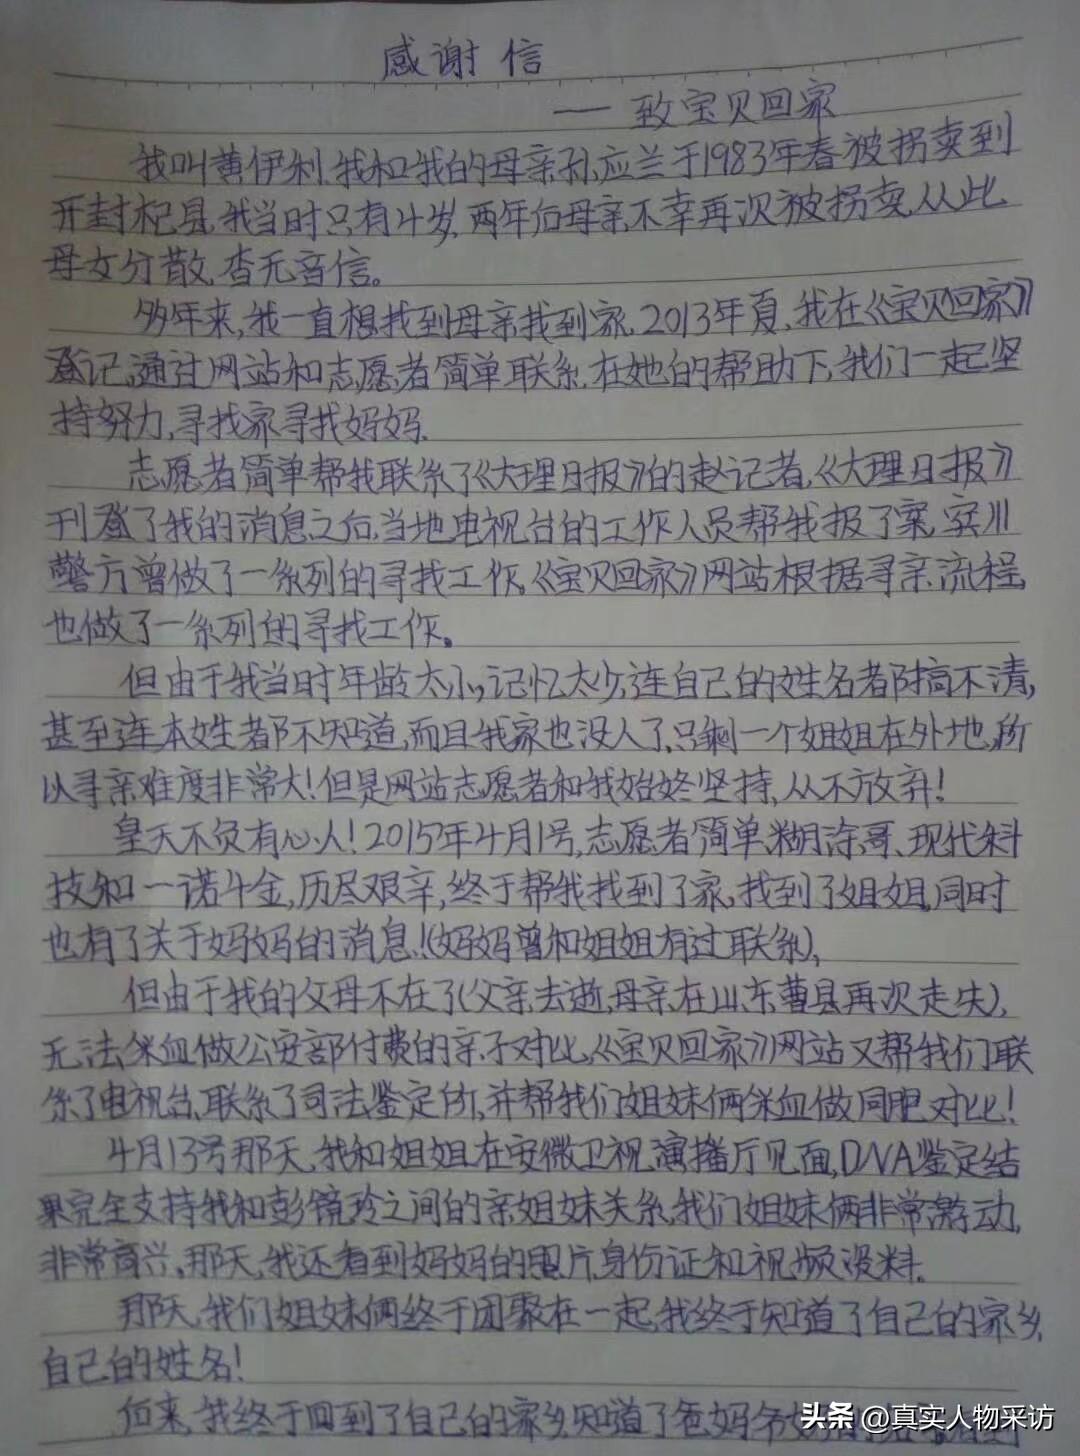 感谢信
——致宝贝回家
我叫黄伊利,我和我的母亲孙应兰于1983年春被拐卖到
开封杞县,我当时只有4岁,两年后母亲不幸再次被拐卖,从此
母女分散,杳无音信。
多年来,我一直想找到母亲找到家,2013年夏,我在《宝贝回家》
登记,通过网站和志愿者简单联系,在她的帮助下,我们一起坚
持努力,寻找家寻找妈妈.
志愿者简单帮我联系了《大理日报》的赵记者,《大理日报》
刊登了我的消息之后,当地电视台的工作人员帮我报了案,宾川
警方曾做了一系列的寻找工作。《宝贝回家》网站根据寻亲流程,
也做了一系列的寻找工作。
但由于我当时年龄太小,记忆太少,连自己的姓名都搞不清,
甚至连本姓都不知道,而且我家也没人了,只剩一个姐姐在外地,所
以寻亲难度非常大!但是网站志愿者和我始终坚持,从不放弃!
皇天不负有心人!2015年4月1号,志愿者简单、糊涂哥、现代科
技和一诺千金,历尽艰辛,终于帮我找到了家,找到了姐姐,同时
也有了关于妈妈的消息!(妈妈曾和姐姐有过联系),
但由于我的父母不在了(父亲去逝,母亲在山东曹县再次走失),
无法采血做公安部付费的亲子对比,《宝贝回家》网站又帮我们联
系了电视台,联系了司法鉴定所,并帮我们姐妹俩采血做同胞对比!
4月13号那天,我和姐姐在安徽卫视演播厅见面,DNA鉴定结
果完全支持我和彭镜玲之间的亲姐妹关系,我们姐妹俩非常激动,
非常高兴。那天,我还看到妈妈的照片,身份证和视频没料.
那天,我们姐妹俩终于团聚在一起,我终于知道了自己的家乡,
自己的姓名!
后来,我终于回到了自己的家乡,知道了爸妈爷奶
头条 @真实人物采访